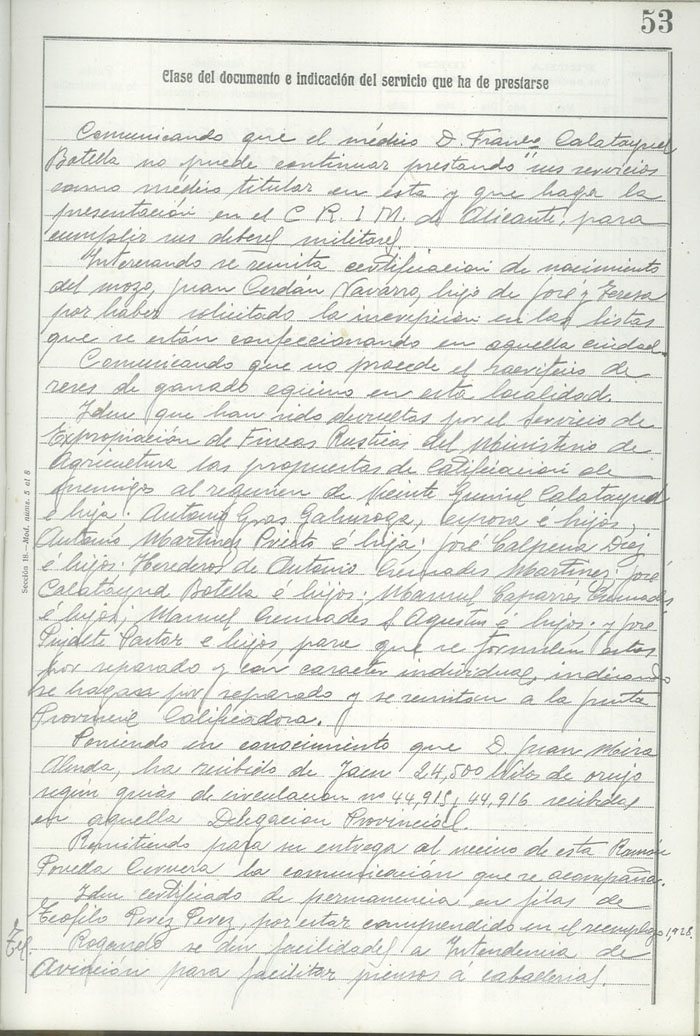 53
Clase del documento e indicación del servicio que ha de prestarse
Comunicando que el médico D. Franco Calatayud
Botella no puede continuar prestando sus servicios
como médico titular en esta y que haga la
presentación en el C R. I M. de Alicante, para
cumplir sus deberes militares.
Interesando se remita certificacion de nacimiento
del mozo, Juan Cerdan Navarro, hijo de José y Teresa
por haber solicitado la inscripcion en las listas
que se están confeccionando en aquella ciudad.
Comunicando que no procede el sacrificio de
reses de ganado equino en esta localidad.
Idem que han sido devueltas por el Servicio de
Expropiación de Fincas Rusticas del Ministerio de
Agricultura las propuestas de Calificacion de
Enemigo al regimen de Vicente Calatayud
é hija: Antonio Gras Galiuroga, esposa é hijos,
Antonio Martinez Prieto é hija; José Calpena Diez
é hijos: Herederos de Antonio Cremades Martinez; José
Calatayud Botella é hijos: Manuel Caparrós Cremades
é hijos; Manuel Cremades S. Agustin é hijos: y José
Pujalte Pastor e hijos para que se formulen estas
por separado y con caracter individual, indicando
se hagasa por separado y se remitan a la junta
Provincial Calificadora.
Poniendo en conocimiento que D. Juan Mira
, ha recibido de Jaen 24,500 kilos de orujo
según guias de circulacion nº 44,915, 44,916 recibidas
en aquella Delegacion Provincial.
Remitiendo para su entrega al vecino de esta Ramón
Poveda Cervera la comunicación que se acompaña.
Idem certificado de permanencia en filas de
Teofilo Perez Perez, por estar comprendido en el reemplazo 1,928.
Tel. Rogando se den facilidades a Intendencia de
Aviación para facilitar piensos á caballerias.
Sección 18.—Mod. núms. 5 al 8